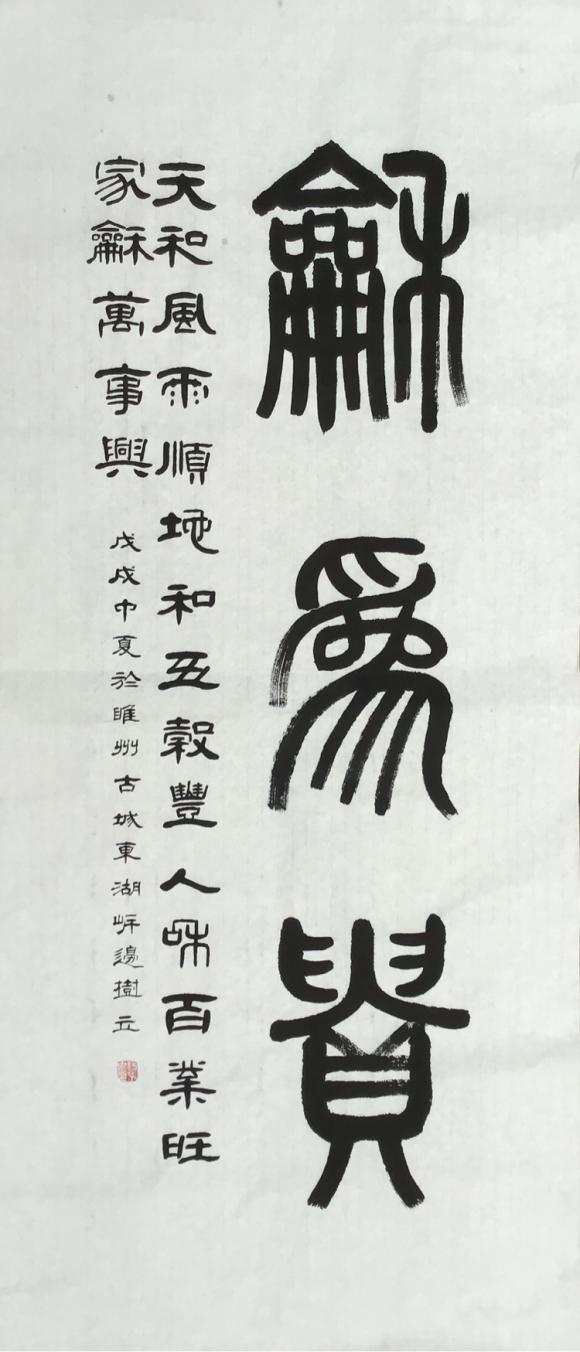 龢爲貴
天和風雨順地和五穀豐人咊百業旺
家龢萬事興
戊戌中夏於睢州古城東湖岸邊樹立